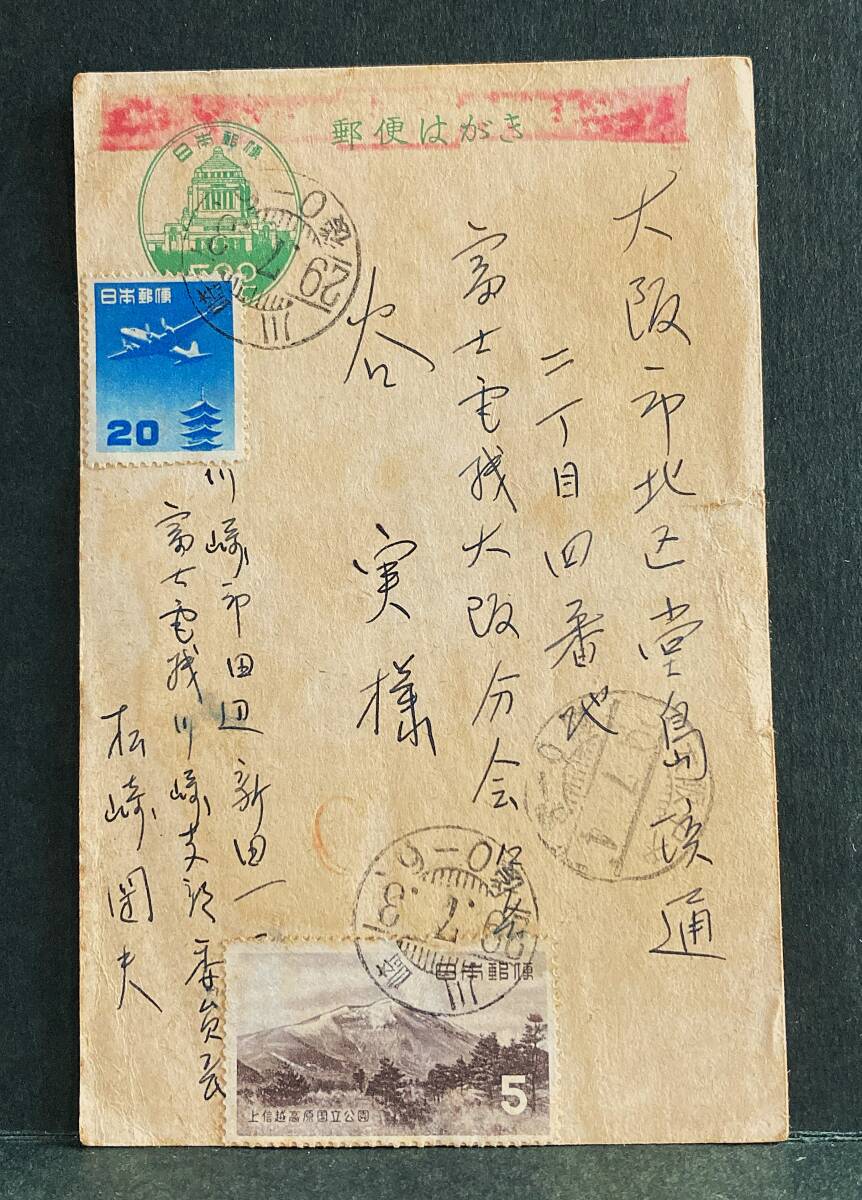 郵便はがき
日本郵便
大阪市北区堂島浜通
二丁目四番地
富士電機大阪分会
谷 実様
日本郵便
20
川崎市田辺新田一
富士電機川崎支部委員会
松崎国夫
川崎
29.7.3
川崎
29.7.3
0-6
日本郵便
5
上信越高原国立公園